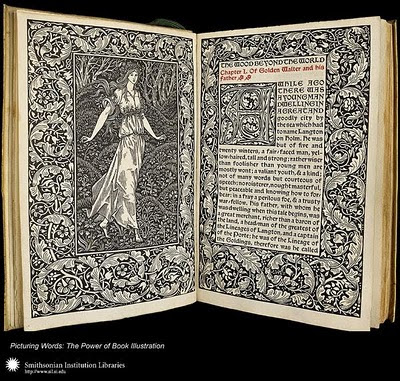 THE WOOD BEYOND THE WORLD
Chapter I. Of Golden Walter and his
Father
AWHILE AGO
THERE WAS
A YOUNG MAN
DWELLING IN
A GREAT AND
goodly city by
the sea which had
to name Langton
on Holm. He was
but of five and
twenty winters, a fair-faced man, yel-
low-haired, tall and strong; rather wiser
than foolisher than young men are
mostly wont; a valiant youth, & a kind;
not of many words but courteous of
speech; no roisterer, nought masterful,
but peaceable and knowing how to for-
bear: in a fray a perilous foe, & a trusty
war-fellow. His father, with whom he
was dwelling when this tale begins, was
a great merchant, richer than a baron of
the land, a head-man of the greatest of
the Lineages of Langton, and a captain
of the Porte; he was of the Lineage of
the Goldings, therefore was he called
Picturing Words: The Power of Book Illustration
Smithsonian Institution Libraries
http://www.sil.si.edu